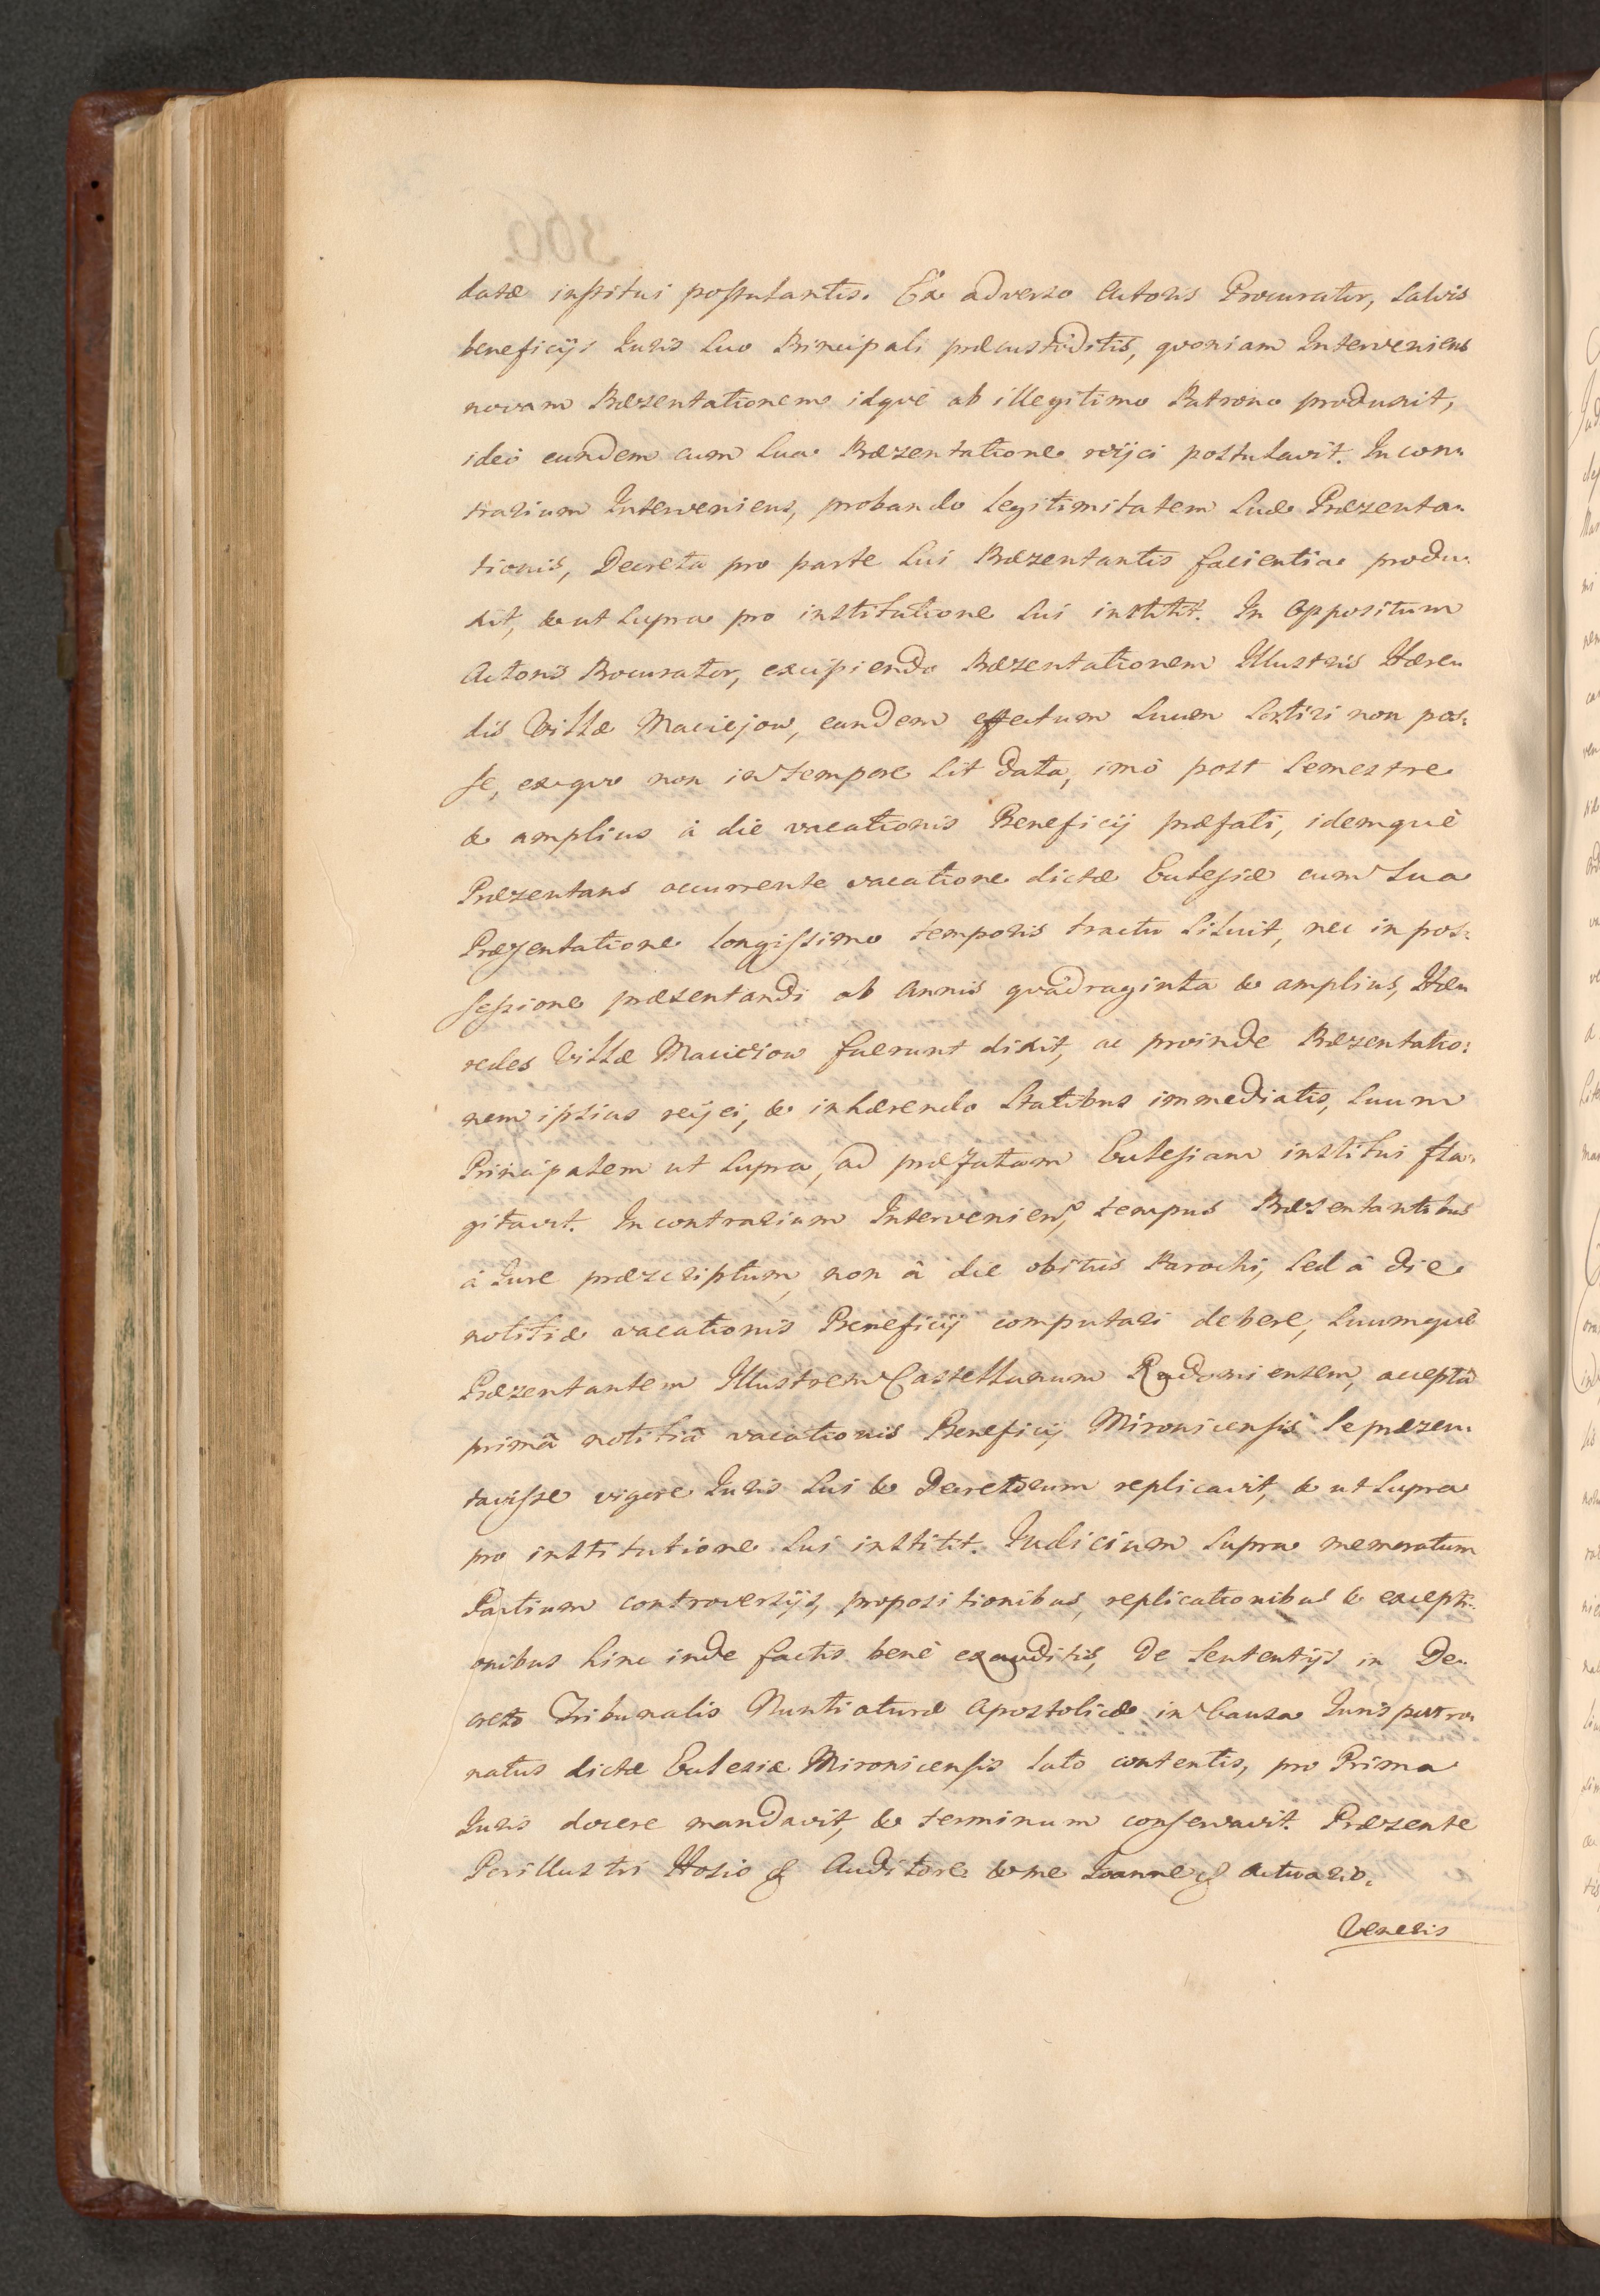 datæ institui postulantis. Ex adverso Actoris Procurator, salvis
beneficijs Iuris suo Principali præcustoditis, qvoniam Interveniens
novam Præzentationem idqvè ab illegitimo Patrono produxit,
ideò eundem cum sua Præzentatione reijci postulavit. In con:
trarium Interveniens, probando legitimitatem suæ Præzenta:
tionis, Decreta pro parte sui Præzentantis facientia produ:
xit, & ut supra pro institutione sui institit. In oppositum
Actoris Procurator, excipiendo Præzentationem Illustris Hære:
dis Villæ Maciejow, eandem effectum suum sortiri non pos:
se, ex qvo non in tempore sit data, imò post semestre
& amplius à die vacationis Beneficij præfati, idemqvè
Præzentans occurrente vacatione dictæ Ecclesiæ cum sua
Præzentatione longissimo temporis tractu siluit, nec in pos:
sessione præzentandi ab annis qvadraginta & amplius, Hæ:
redes Villæ Maciejow fuerunt dixit, ac proinde Præzentatio:
nem ipsius reijci, & inhærendo Statibus immediatis, suum
Principalem ut supra, ad præfatam Ecclesiam institui fla:
gitavit. In contrarium Interveniens, tempus Præzentantibus
à Iure præscriptum, non à die obitus Parochi, sed à die
notitiæ vacationis Beneficij computari debere, suumqvè
Præzentantem Illustrem Castellanum Radomiensem, accepta
primâ notitiâ vacationis Beneficij Mironicensis se præzen:
tavisse vigore Iuris sui & Decretorum replicavit, & ut supra
pro institutione sui institit. Iudicium supra memoratum
Partium controversijs, propositionibus, replicationibus & excepti:
onibus hinc inde factis benè exauditis, de sententijs in De:
creto Tribunalis Nuntiaturæ Apostolicæ in Causa Iurispatro:
natus dictæ Ecclesiæ Mironicensis lato contentis, pro Prima
Iuris docere mandavit, & terminum conservavit. Præzente
Perillustri Hosio & Auditore & me Ioanne & Actuario.
Veneris